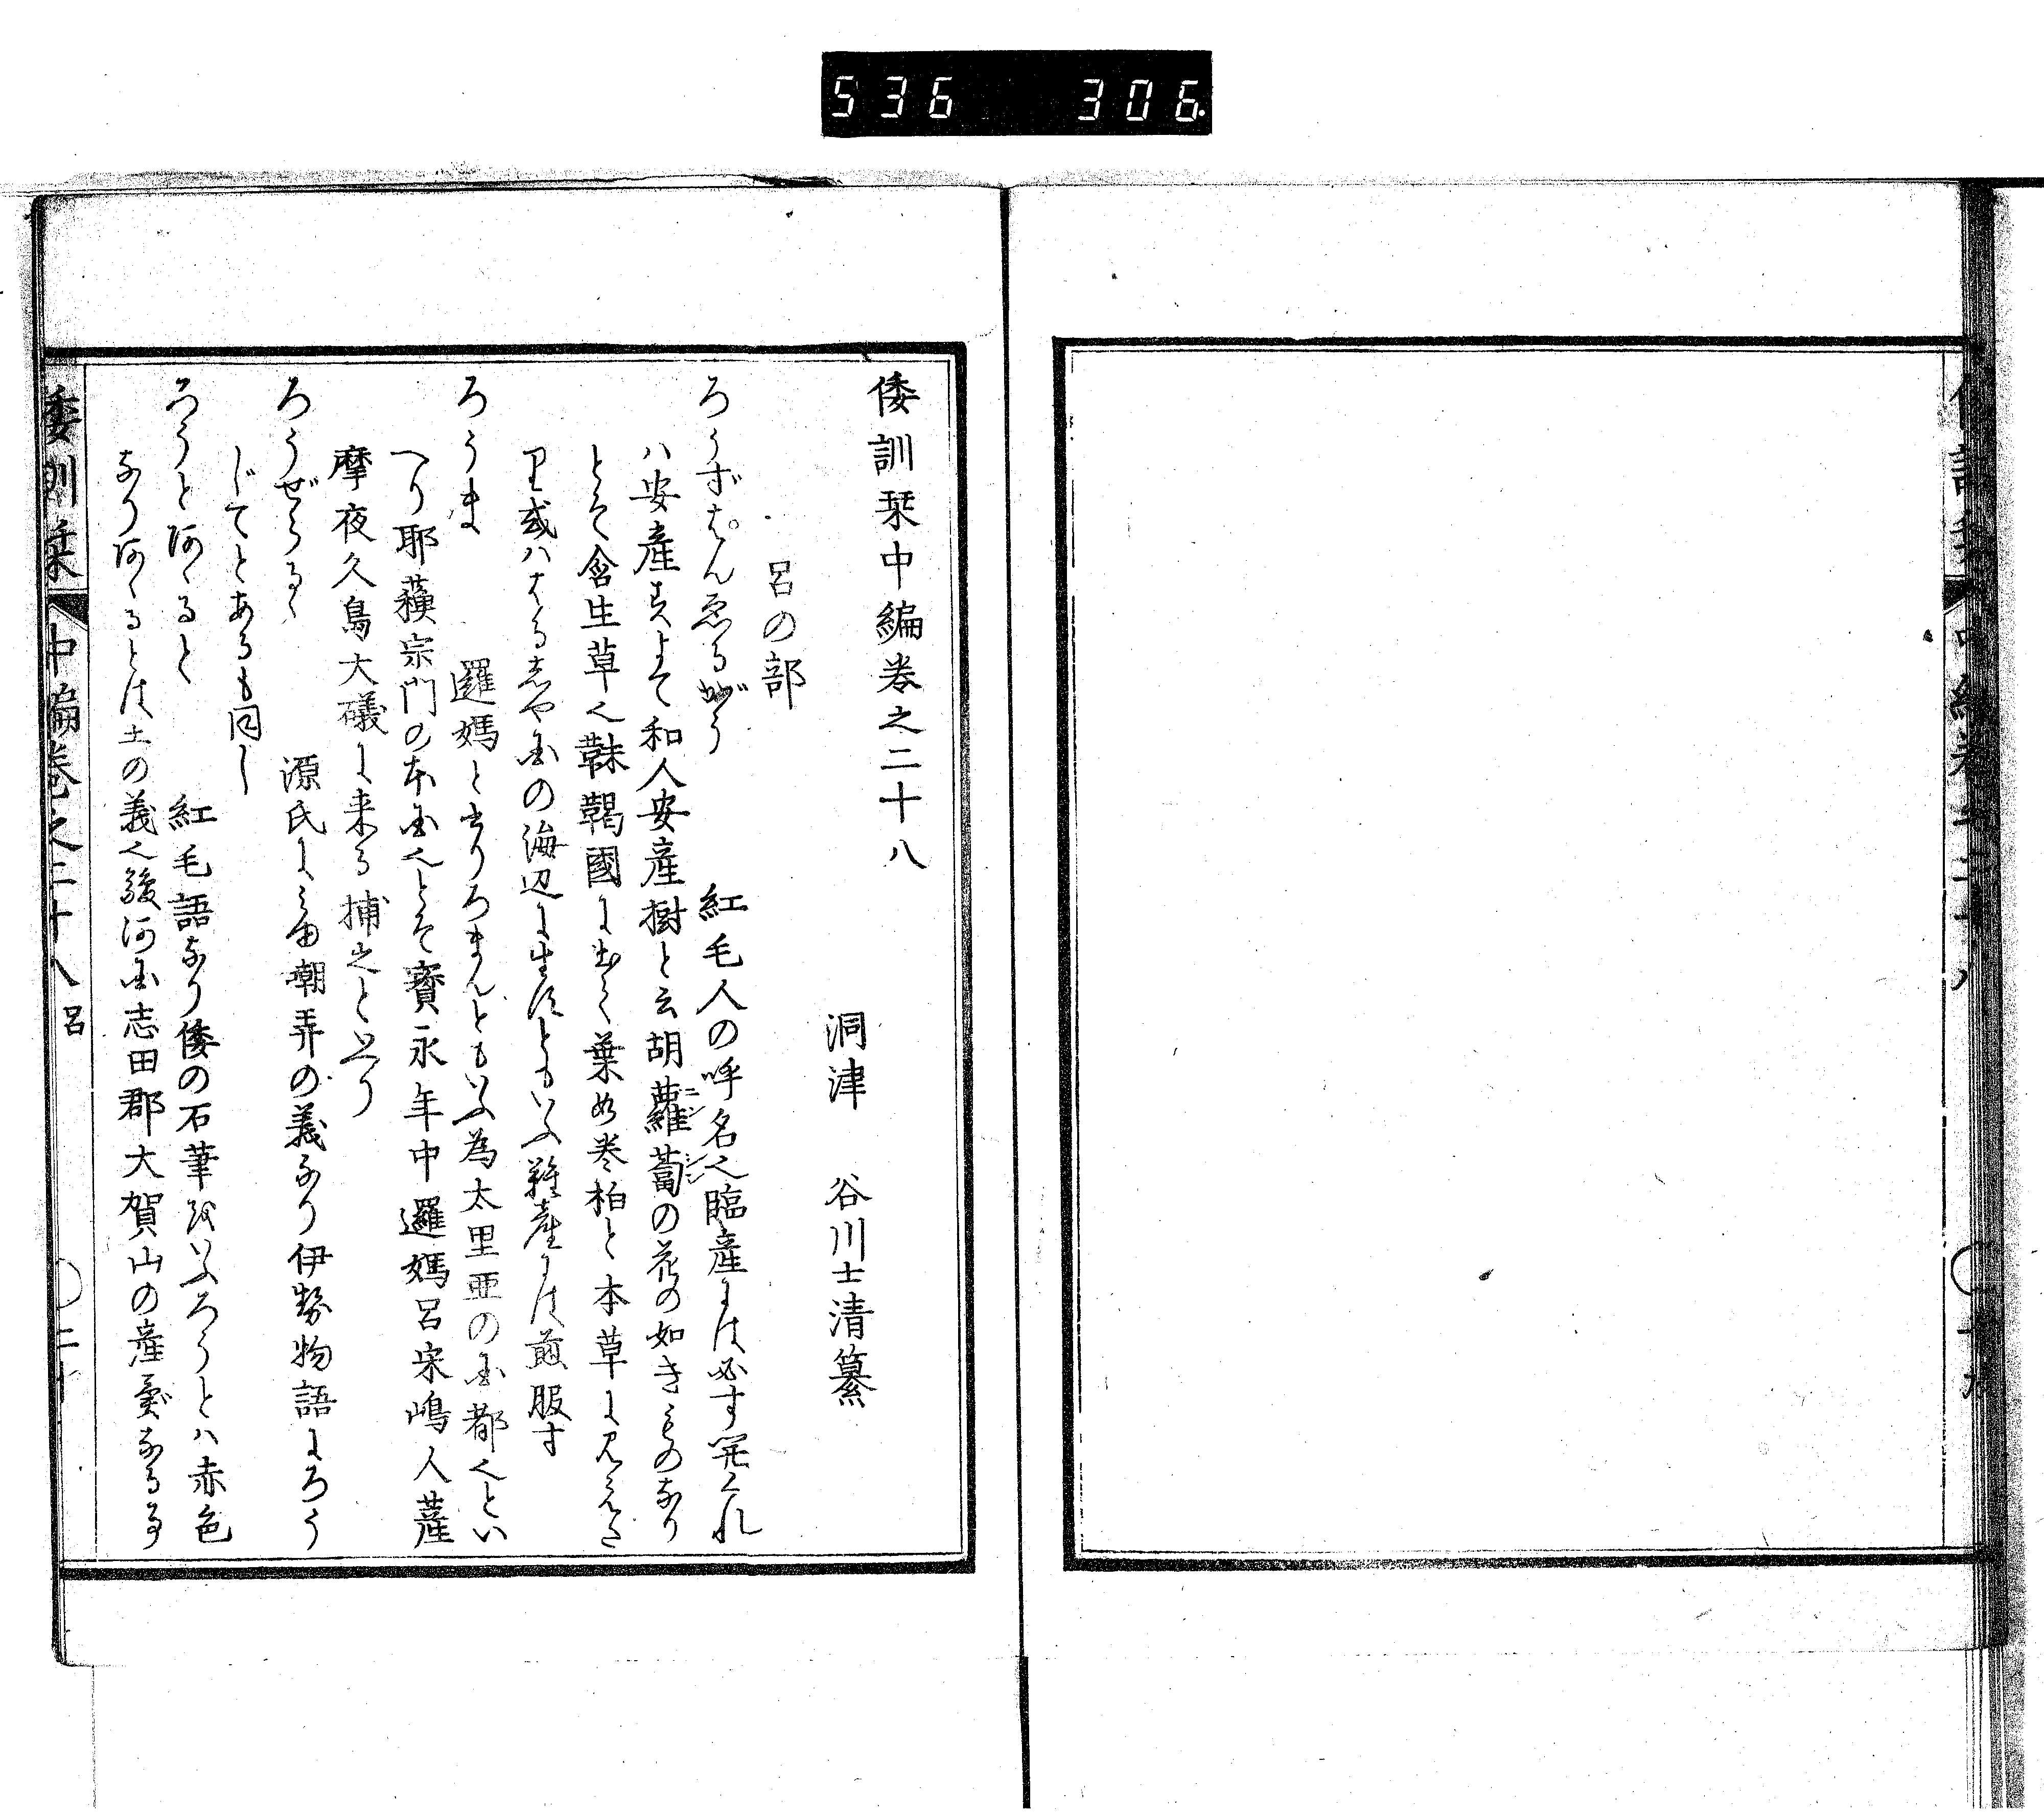 536 306.
倭訓栞中編巻之二十八
洞津 谷川士清纂
呂の部
ろうずはんゑるがう 紅毛人の呼名也臨産には必す開くれ
ハ安産すよて和人安産樹と云胡蘿蔔の花の如きものなり
とそ含生草也靺鞨國に出て葉如巻柏と本草に見えた
り或ハはるしや国の海辺に生すともいふ難産には煎服す
ろうま 邏媽と書りろまんともいふ為太里亜の国都也とい
へり耶蘓宗門の本国也とそ寳永年中邏媽呂宋嶋人薩
摩夜久島大礒に来る捕之といへり
ろうぜらるゝ 源氏に見ゆ嘲弄の義なり伊勢物語にろう
じてとあるも同し
ろうと阿ゝると 紅毛語なり倭の石筆をいふろうとハ赤色
なり阿ゝるとは土の義也駿河国志田郡大賀山の産彙なる
倭訓栞 中編巻之二十八 呂